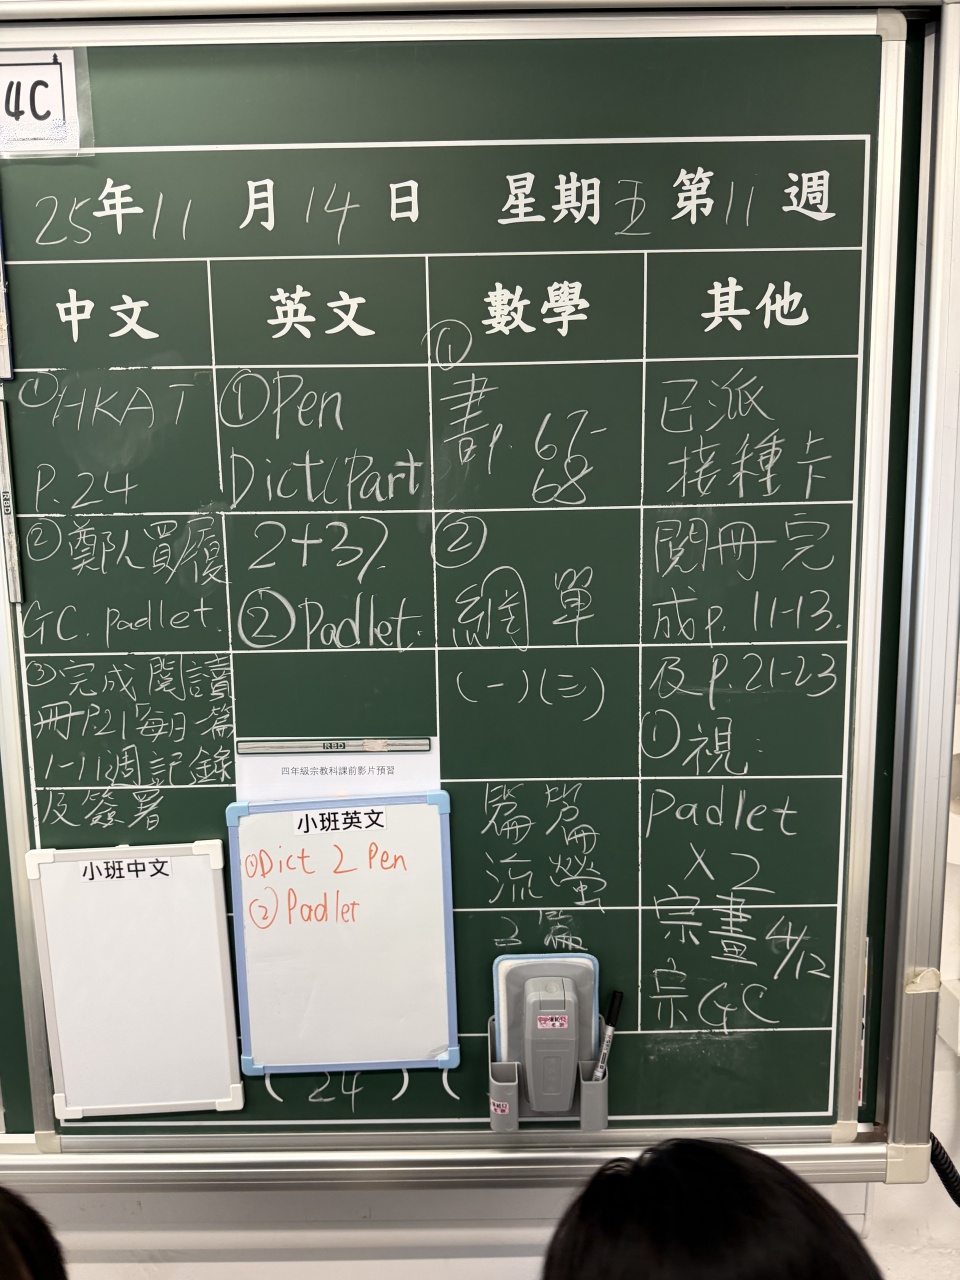 4C
25年11月14日 星期五 第11週
中文 英文 數學 其他
①HKAT
P.24
②鄭人買履
GC. padlet.
③完成閱讀
冊P.21「每日一篇
1-11週記錄
及簽署
①Pen
Dict(Part
2+3)
②Padlet.
四年級宗教科課前影片預習
①
書p. 67-
68
②
網單
(一)(三)
篇
流螢
已派
接種卡
閱冊完
成p. 11-13.
及p.21-23
①視:
Padlet
X2
宗畫4/12
宗GC
小班中文
小班英文
①Dict 2 Pen
②Padlet
RBD
RBD
(24)(